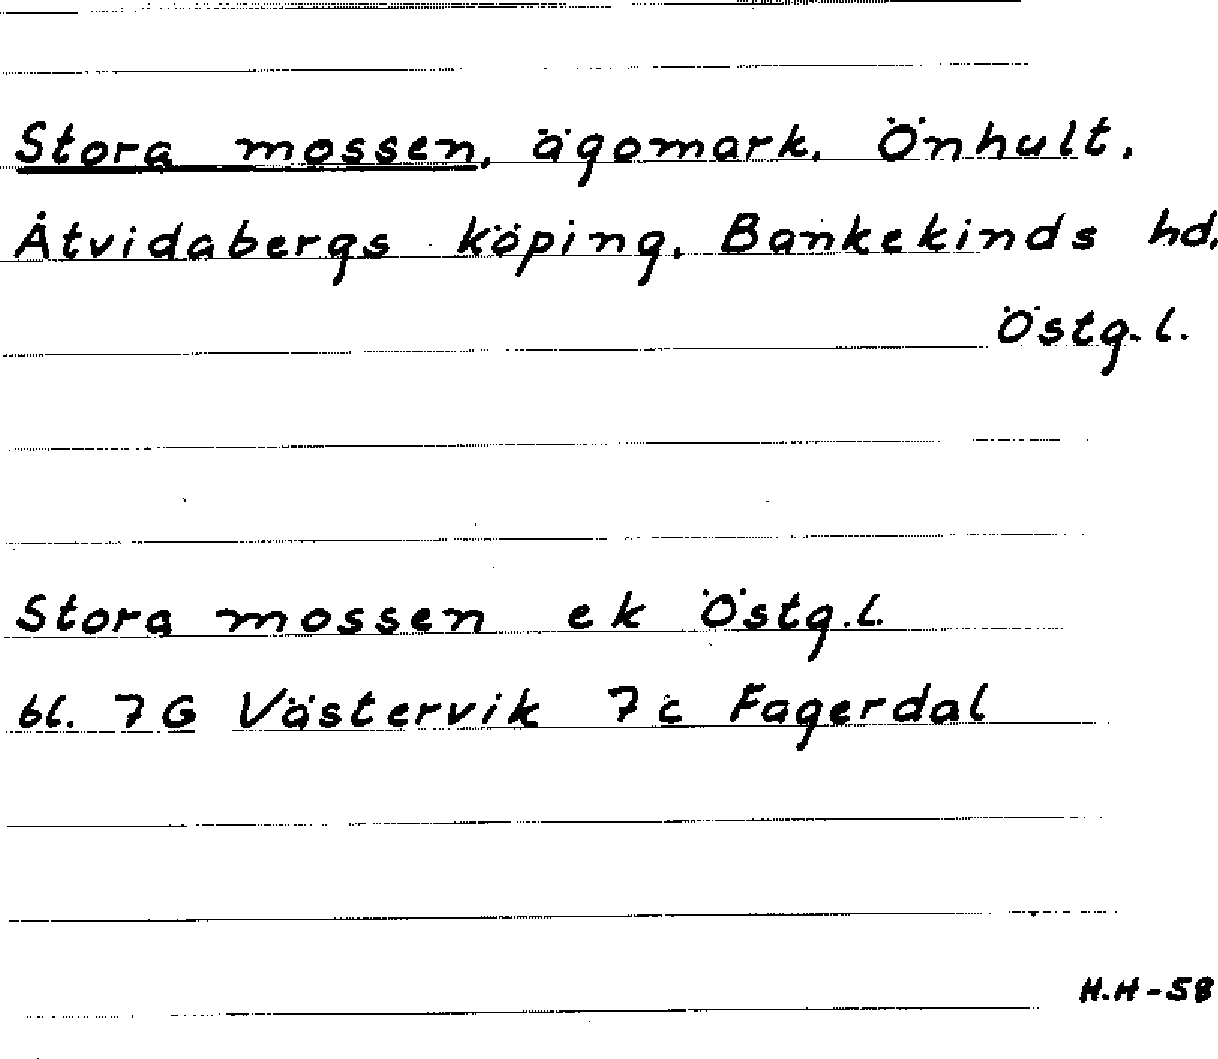 Stora mossen, ägomark, Önhult,
Åtvidabergs köping, Bankekinds hd,
Östg. l.
Stora mossen ek Östg. l.
bl. 7G Västervik 7 c Fagerdal
H.H-58